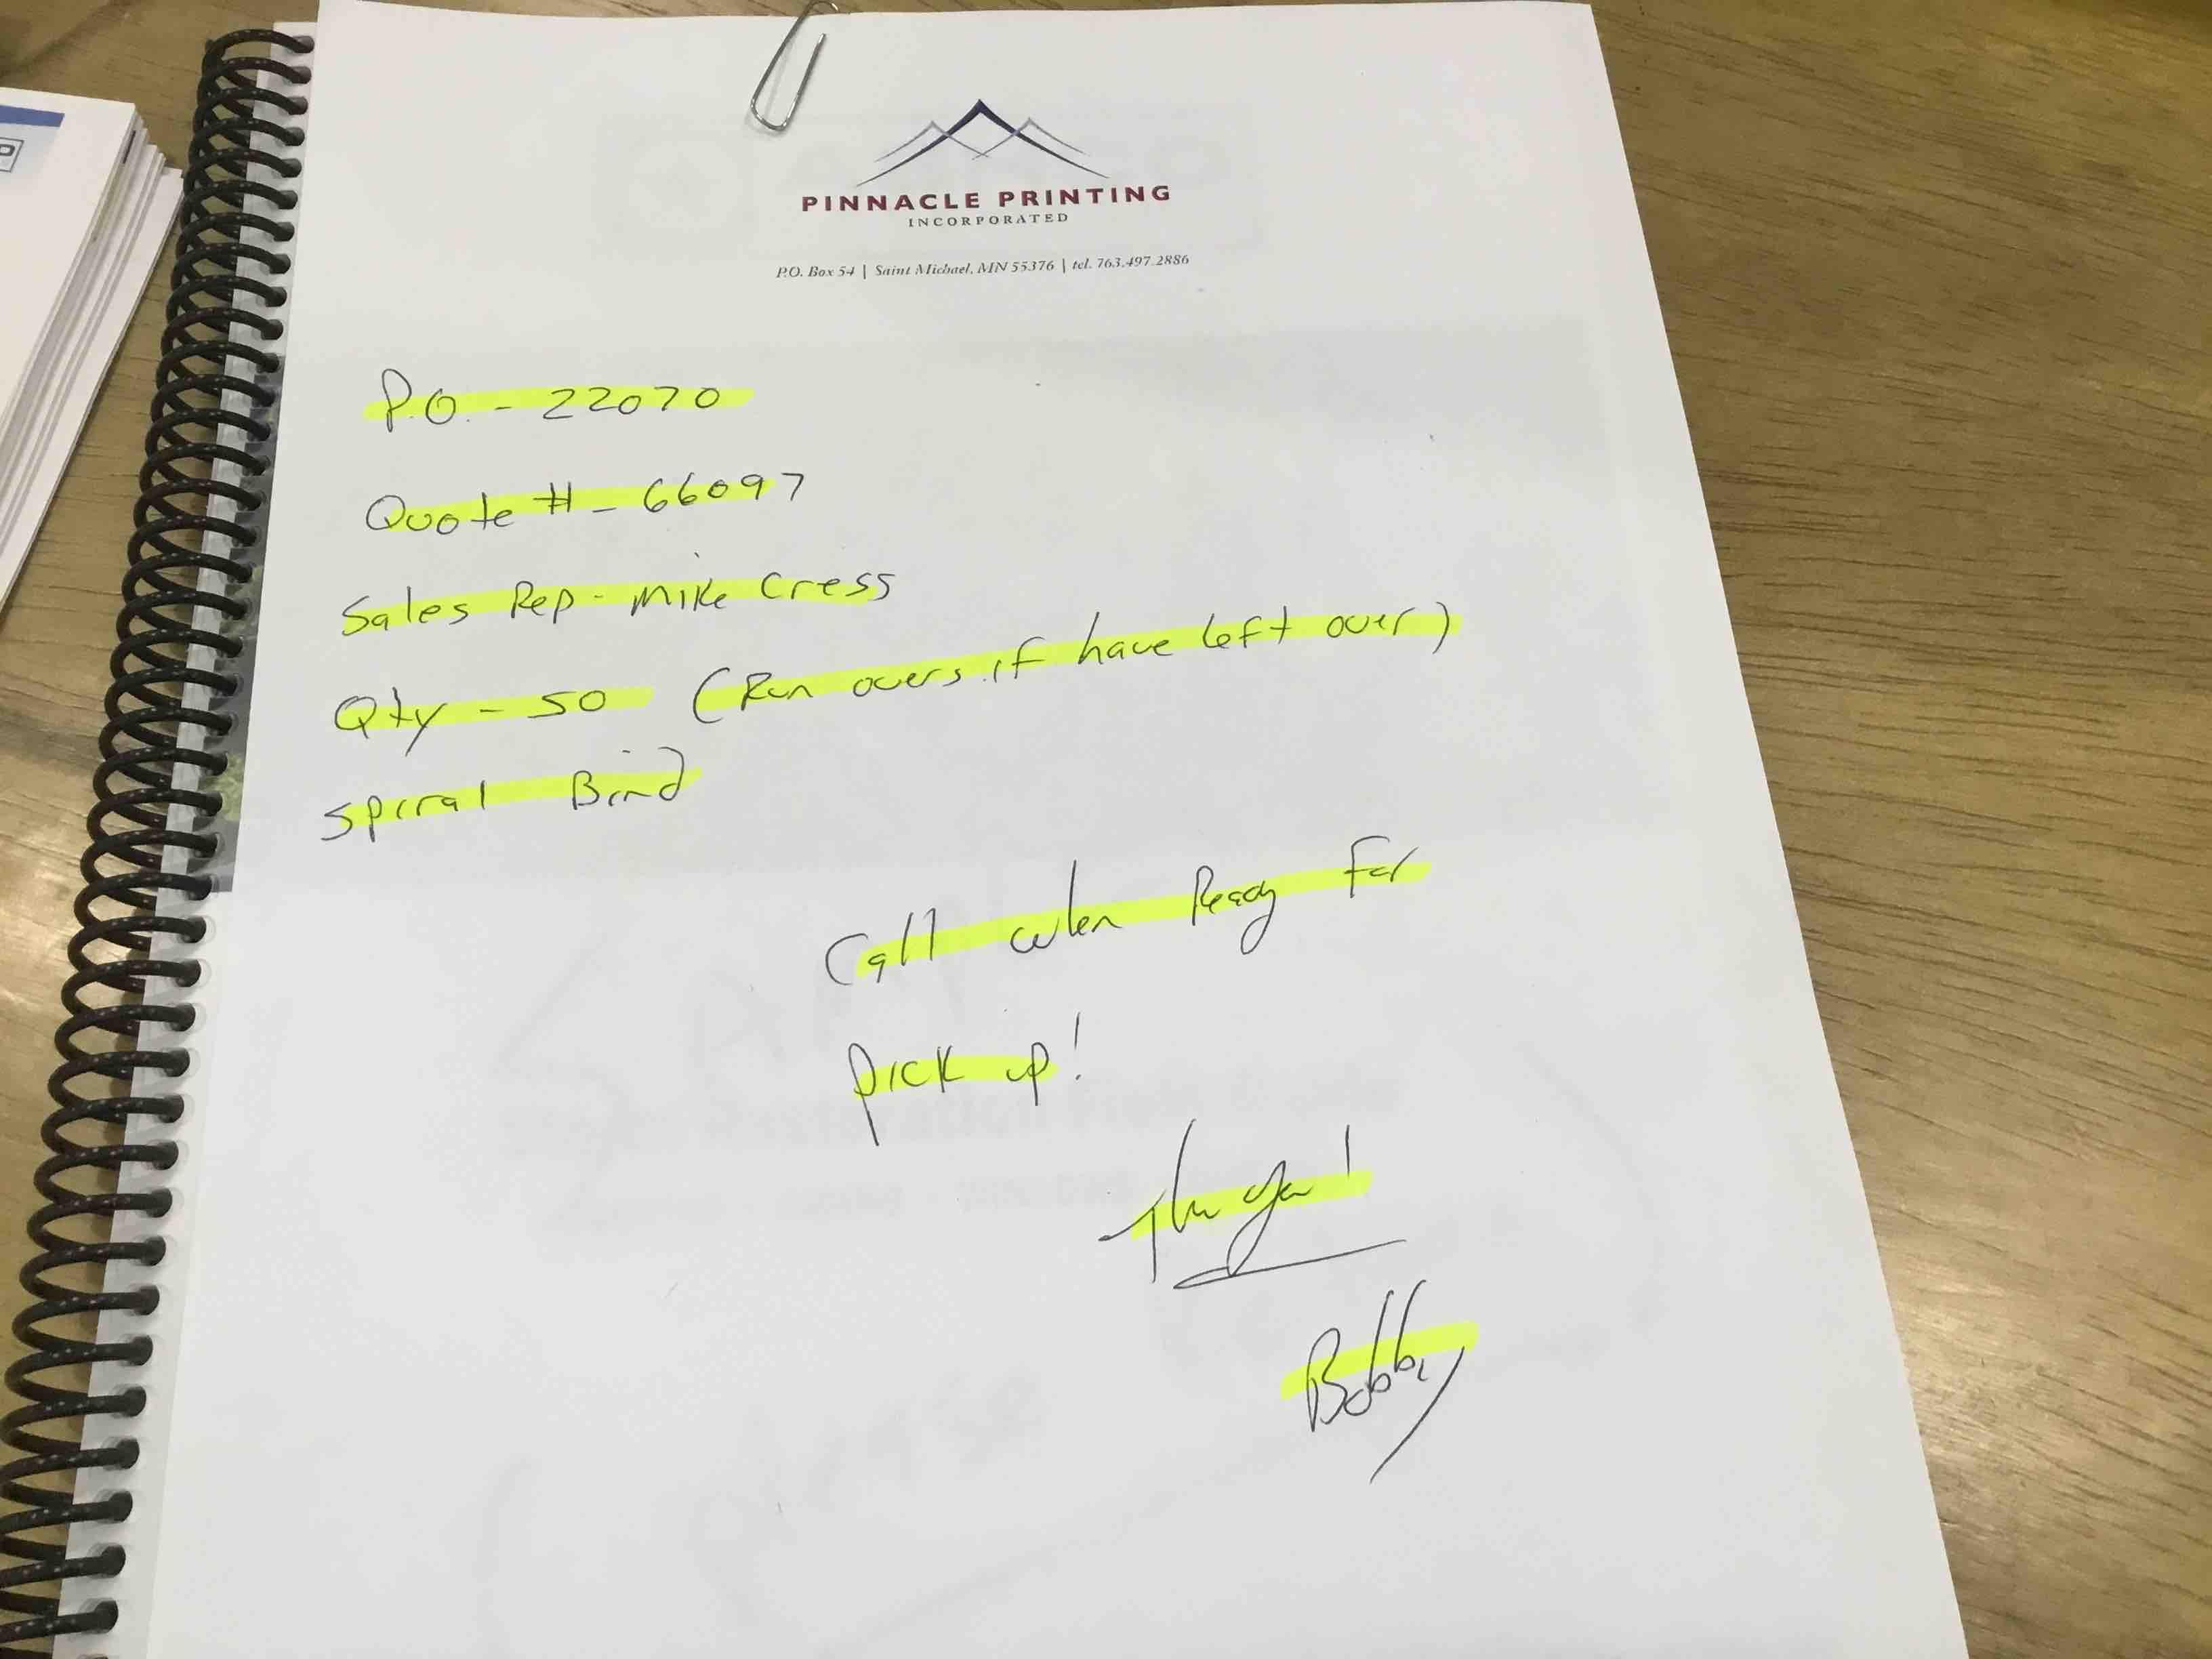 PINNACLE PRINTING
INCORPORATED
P.O. Box 54 | Saint Michael, MN 55376 | tel. 763.497.2886
P.O. - 22070
Quote # - 66097
Sales Rep - Mike Cress
Qty - 50 (Run overs if have left over)
Spiral Bind
Call when Ready for
pick up!
Thank you!
Bobby